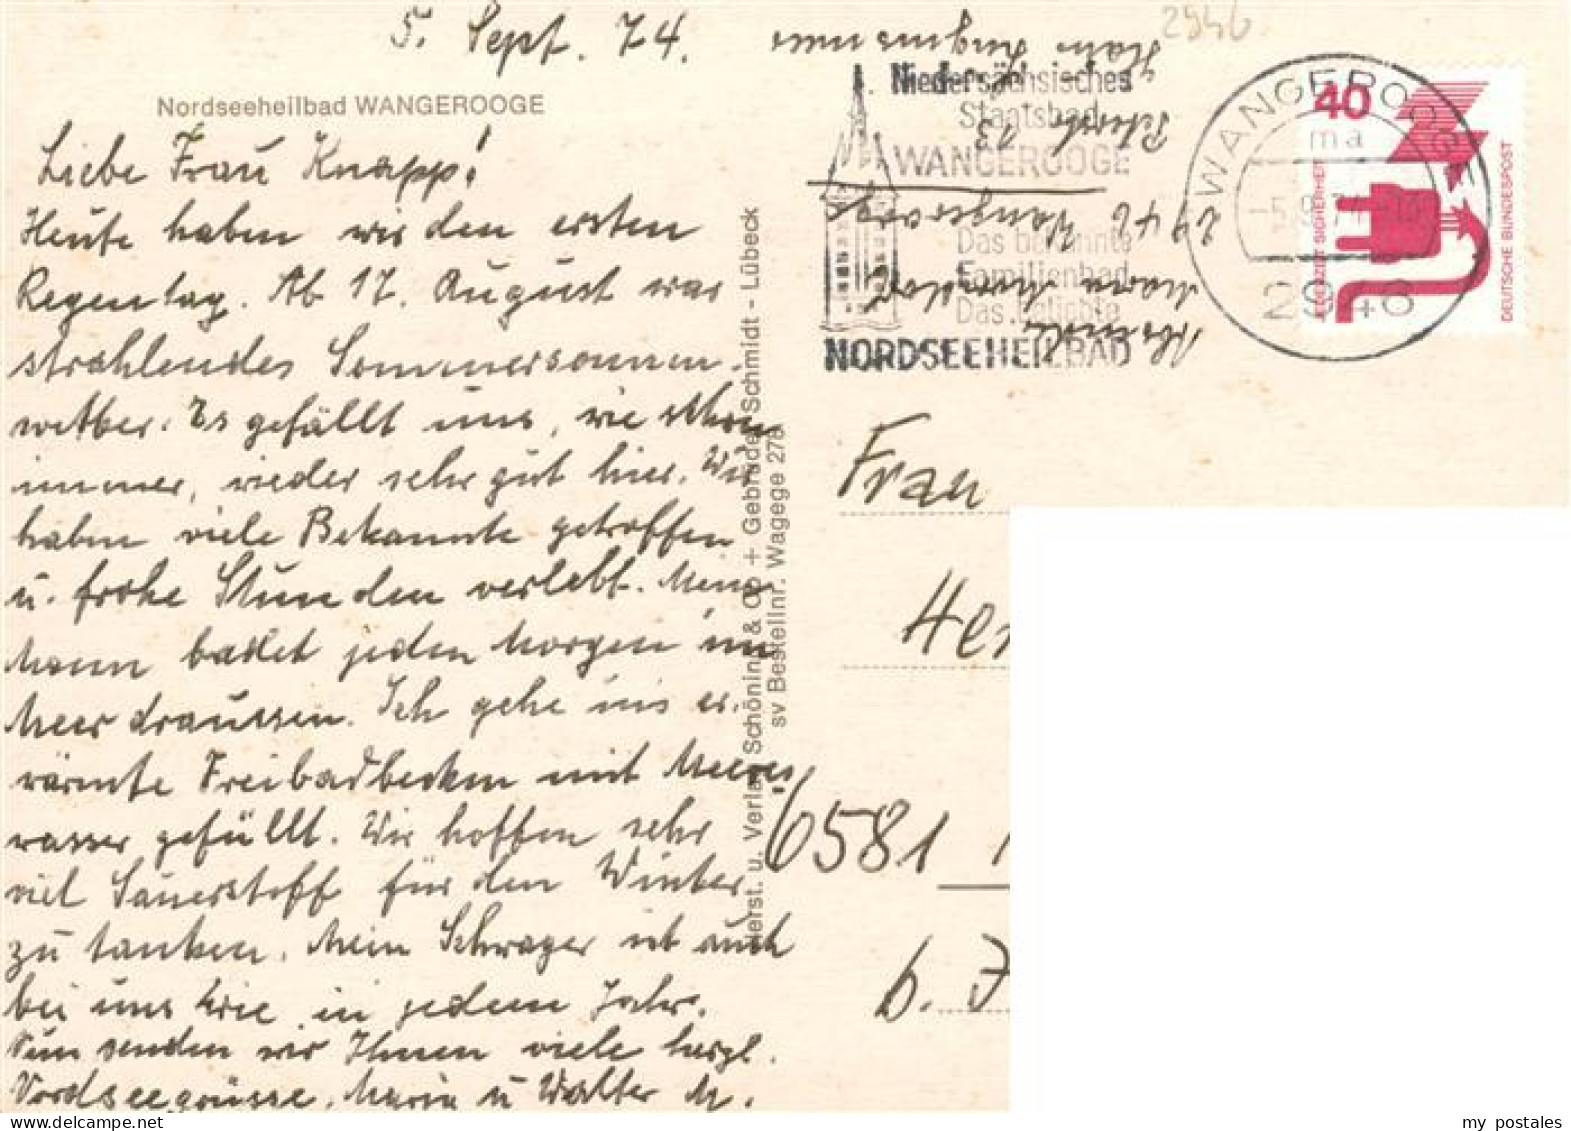 5. Sept. 74.
2946
Nordseeheilbad WANGEROOGE
Liebe Frau Knapp!
Heute haben wir den ersten
Regentag. Ab 17. August war
strahlendes Sommersonnen-
wetter. Es gefällt uns, wie schon
immer, wieder sehr gut hier. Wir
haben viele Bekannte getroffen
u. frohe Stunden verlebt. Mein
Mann badet jeden Morgen im
Meer draussen. Ich gehe ins er-
wärmte Freibadbecken mit Meeres-
wasser gefüllt. Wir hoffen sehr
viel Sauerstoff für den Winter
zu tanken. Mein Schwager ist auch
bei uns wie in jedem Jahr.
Nun senden wir Ihnen viele herzl.
Nordseegrüsse. Maria u Walter M.
Herst. u. Verlag Schöning & Co + Gebrüder Schmidt - Lübeck
sv Bestellnr. Wagege 278
Niedersächsisches
Staatsbad
WANGEROOGE
Das bekannte
Familienbad
Das beliebte
NORDSEEHEILBAD
WANGEROOGE
ma
-5.9.74-
2946
40
JEDERZEIT SICHERHEIT
DEUTSCHE BUNDESPOST
Absender
Maria
2946 Wangerooge
13
Haus
Frau
Her
6581
b. I
my_postales